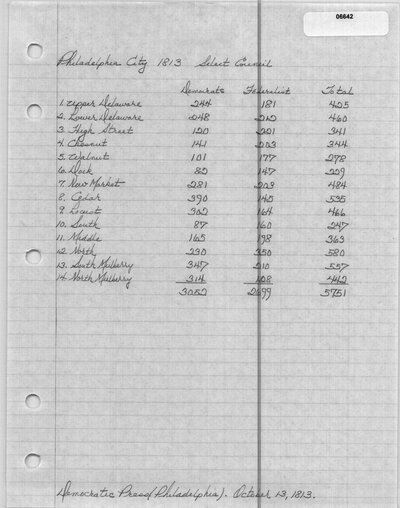 06642
Philadelphia City 1813 Select Council
Democrats Federalist Total
1. Upper Delaware 244 181 425
2. Lower Delaware 248 212 460
3. High Street 120 221 341
4. Chesnut 141 203 344
5. Walnut 101 177 278
6. Dock 82 147 229
7. New Market 281 203 484
8. Cedar 390 145 535
9. Locust 302 164 466
10. South 87 160 247
11. Middle 165 198 363
12. North 230 350 580
13. South Mulberry 347 210 557
14. North Mulberry 314 128 442
3052 2699 5751
Democratic Press (Philadelphia). October 13, 1813.